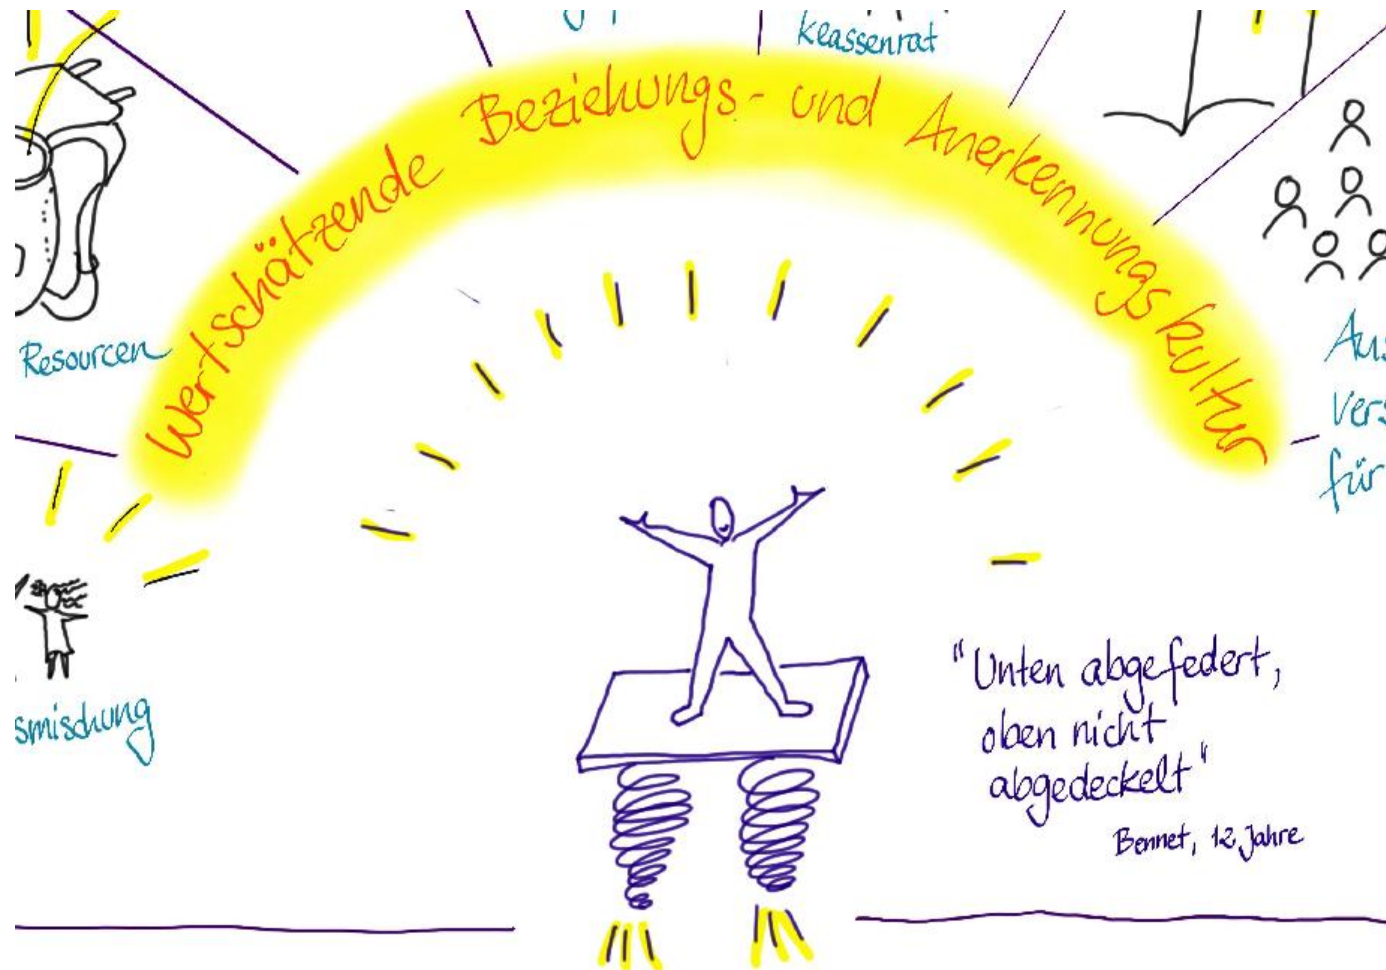 Klassenrat
Wertschätzende Beziehungs- und Anerkennungskultur
Resourcen
smischung
Aus
vers
für
"Unten abgefedert,
oben nicht
abgedeckelt"
Bennet, 12 Jahre